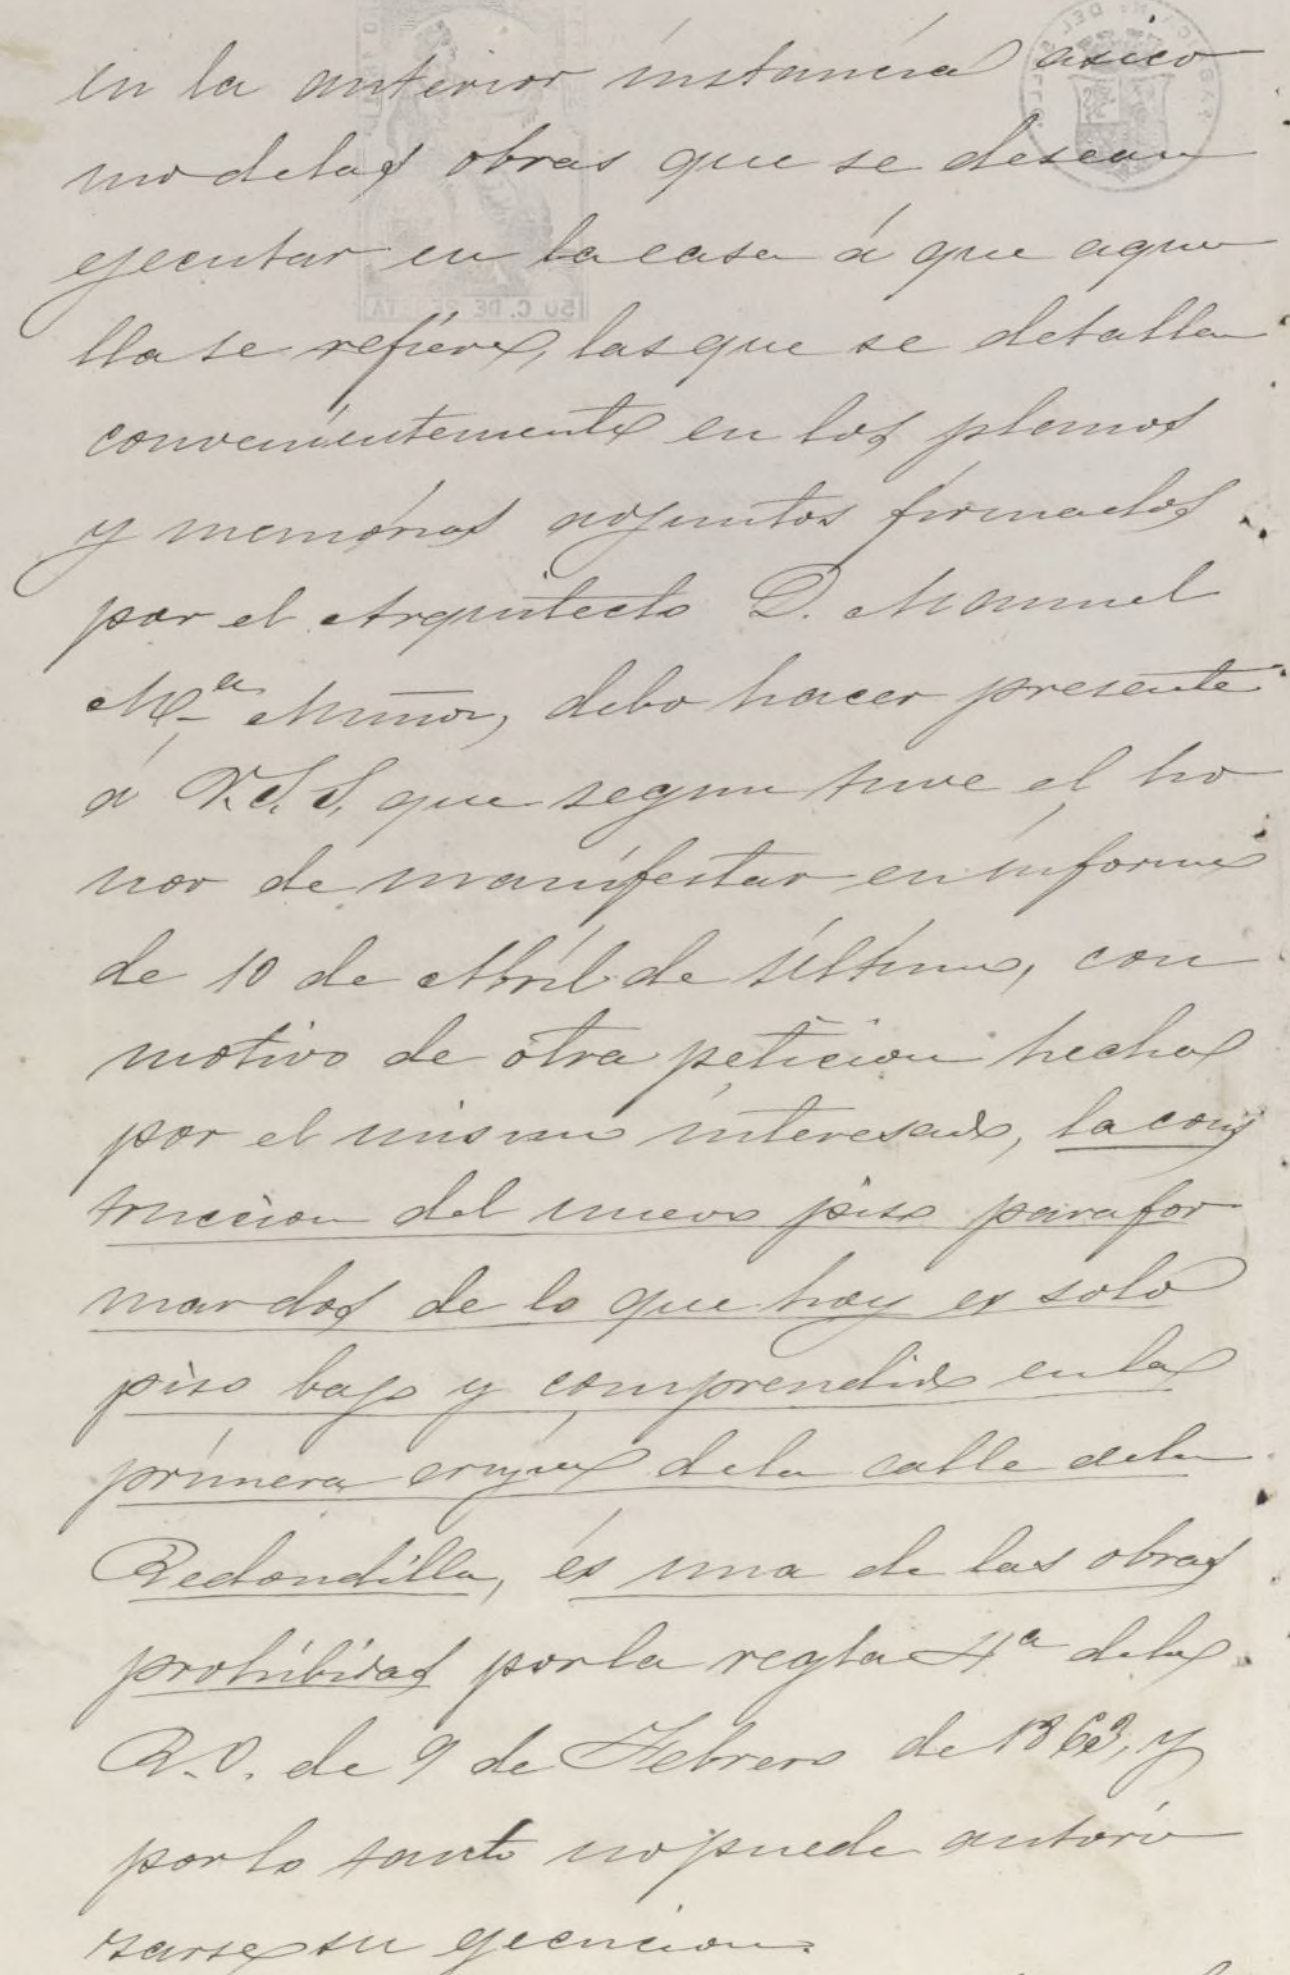 en la anterior instancia asico
mo de las obras que se desean
ejecutar en la casa á que aque
lla se refiere, las que se detallan
convenientemente en los planos
y memorias adjuntos firmados
por el Arquitecto D. Manuel
M.ª Muñoz, debo hacer presente
á V.S.S. que segun tuve el ho
nor de manifestar en informe
de 10 de Abril de último, con
motivo de otra peticion hecha
por el mismo interesado, la cons
truccion del nuevo piso para for
mar dos de lo que hoy es solo
piso bajo y comprendido en la
primera crujia de la calle de la
Redondilla, és una de las obras
prohibidas por la regla 4ª de la
R.O. de 9 de Febrero de 1863, y
por lo tanto no puede autori
zarse su ejecucion.
50 C. DE PESETA